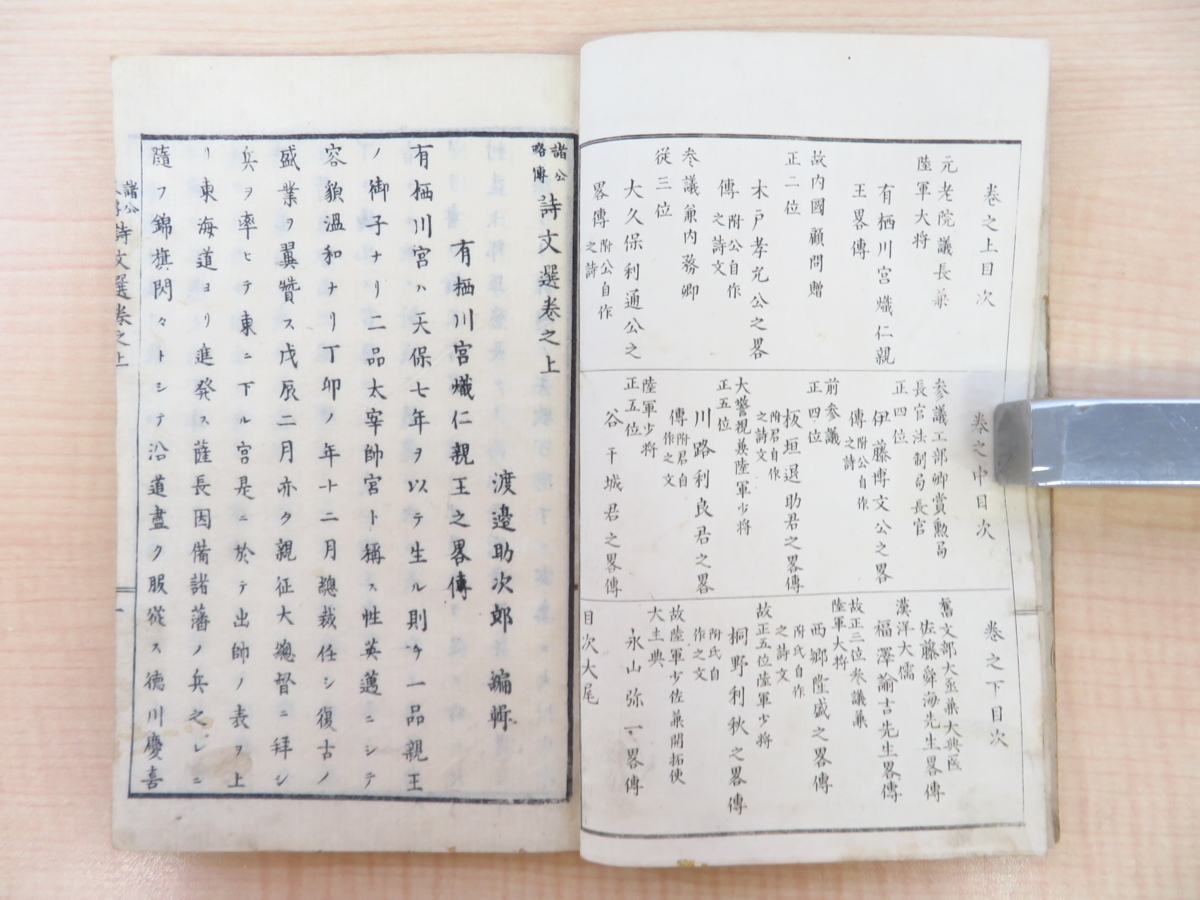 卷之上目次
元老院議長兼
陸軍大将
有栖川宮熾仁親
王畧傳
故内國顧問贈
正二位
木戸孝允公之畧
傳 附公自作
之詩文
参議兼内務卿
從三位
大久保利通公之
畧傳 附公自作
之詩
卷之中目次
参議工部卿賞勲局
長官法制局長官
正四位
伊藤博文公之畧
傳 附公自作
之詩
前参議
正四位
板垣退助君之畧傳
附君自作
之詩文
大警視兼陸軍少将
正五位
川路利良君之畧
傳 附君自
作之文
陸軍少将
正五位
谷干城君之畧傳
卷之下目次
舊文部大丞兼大典医
佐藤舜海先生畧傳
漢洋大儒
福澤諭吉先生畧傳
故正三位参議兼
陸軍大将
西郷隆盛之畧傳
附氏自作
之詩文
故正五位陸軍少将
桐野利秋之畧傳
附氏自
作之文
故陸軍少佐兼開拓使
大主典
永山弥一畧傳
目次大尾
諸公
略傳 詩文選卷之上
渡邉助次郎 編輯
有栖川宮熾仁親王之畧傳
有栖川宮ハ天保七年ヲ以テ生ル則チ一品親王
ノ御子ナリ二品太宰帥宮ト稱ス性英邁ニシテ
容貌温和ナリ丁卯ノ年十二月總裁任シ復古ノ
盛業ヲ翼賛ス戊辰二月亦タ親征大總督ニ拜シ
兵ヲ率ヒテ東ニ下ル宮是ニ於テ出師ノ表ヲ上
リ東海道ヨリ進発ス薩長因備諸藩ノ兵之レニ
隨フ錦旗閃々トシテ沿道盡ク服從ス徳川慶喜
諸公
詩文選卷之上
一